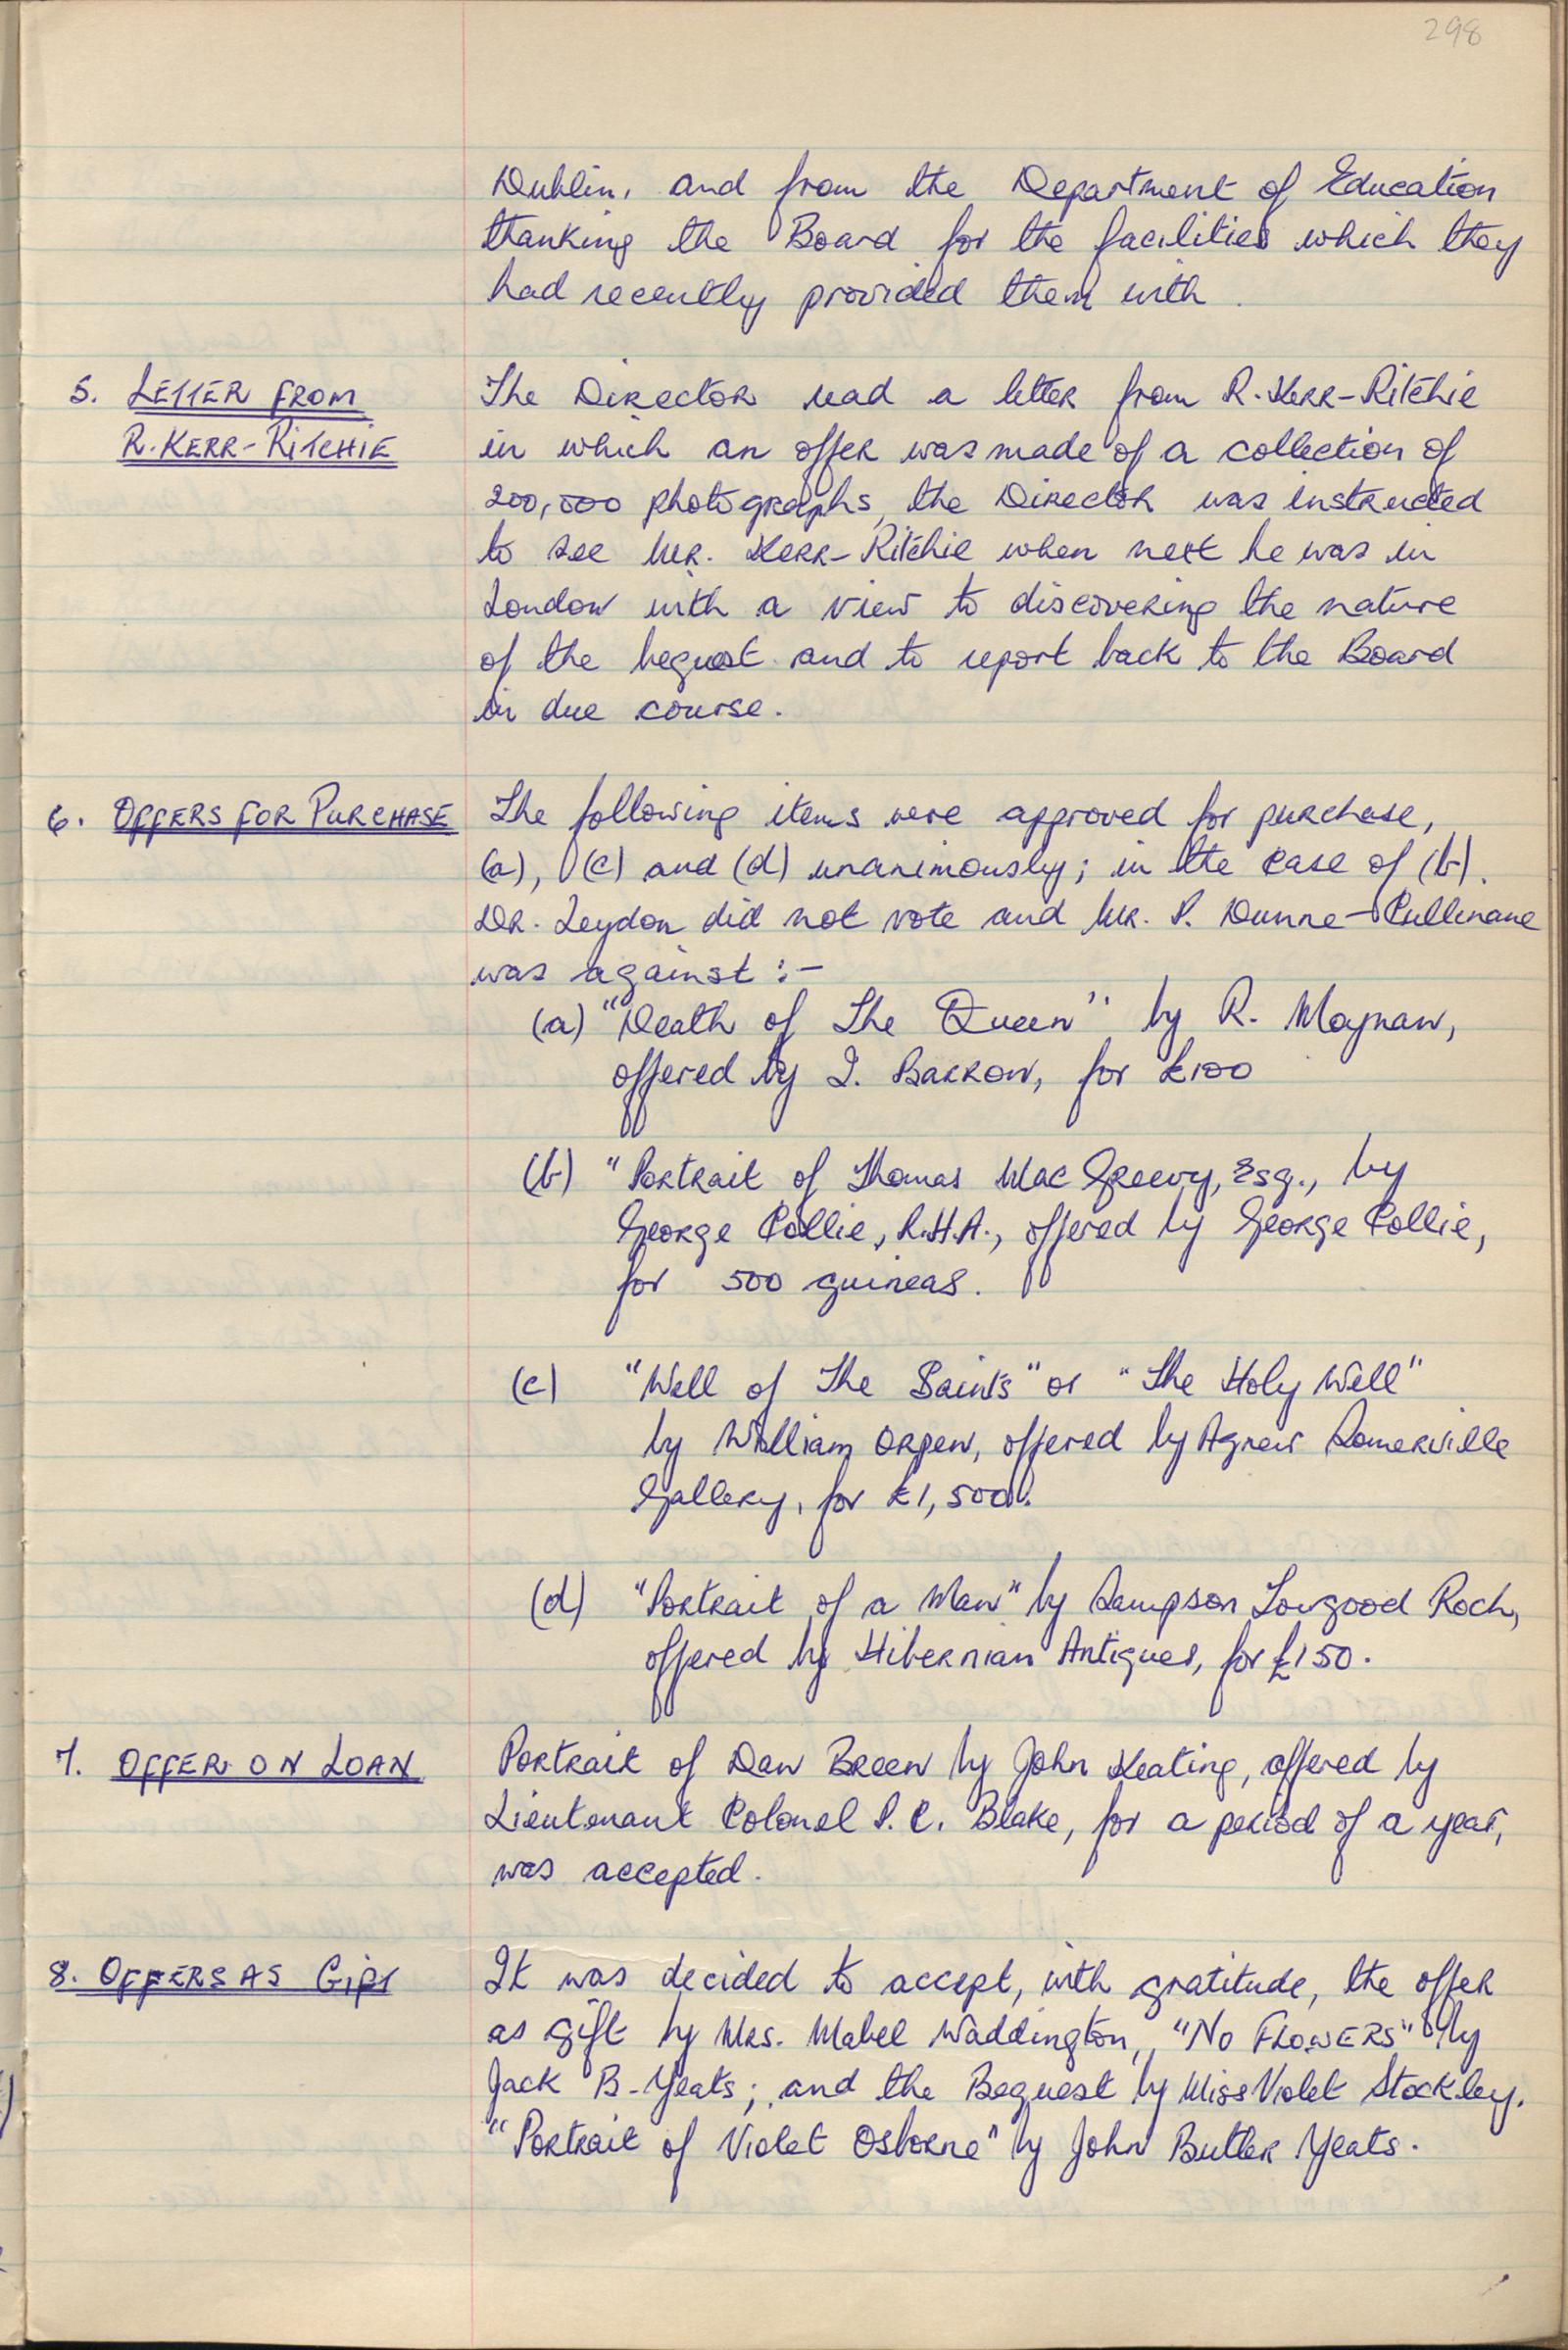 298
Dublin, and from the Department of Education
thanking the Board for the facilities which they
had recently provided them with.
5. LETTER FROM
R. KERR-RITCHIE
The Director read a letter from R. Kerr-Ritchie
in which an offer was made of a collection of
200,000 photographs, the Director was instructed
to see Mr. Kerr-Ritchie when next he was in
London with a view to discovering the nature
of the bequest and to report back to the Board
in due course.
6. OFFERS FOR PURCHASE
The following items were approved for purchase,
(a), (c) and (d) unanimously; in the case of (b).
Dr. Leydon did not vote and Mr. P. Dunne-Cullinane
was against :-
(a) "Death of The Queen" by R. Moynan,
offered by I. Barrow, for £100
(b) "Portrait of Thomas MacGreevy, Esq., by
George Collie, R.H.A., offered by George Collie,
for 500 guineas.
(c) "Well of The Saints" or "The Holy Well"
by William Orpen, offered by Agnew Somerville
Gallery, for £1,500.
(d) "Portrait of a Man" by Sampson Towgood Roch,
offered by Hibernian Antiques, for £150.
7. OFFER ON LOAN
Portrait of Dan Breen by John Keating, offered by
Lieutenant Colonel P. C. Blake, for a period of a year,
was accepted.
8. OFFERS AS GIFT
It was decided to accept, with gratitude, the offer
as gift by Mrs. Mabel Waddington, "NO FLOWERS" by
Jack B. Yeats; and the Bequest by Miss Violet Stockley.
"Portrait of Violet Osborne" by John Butler Yeats.